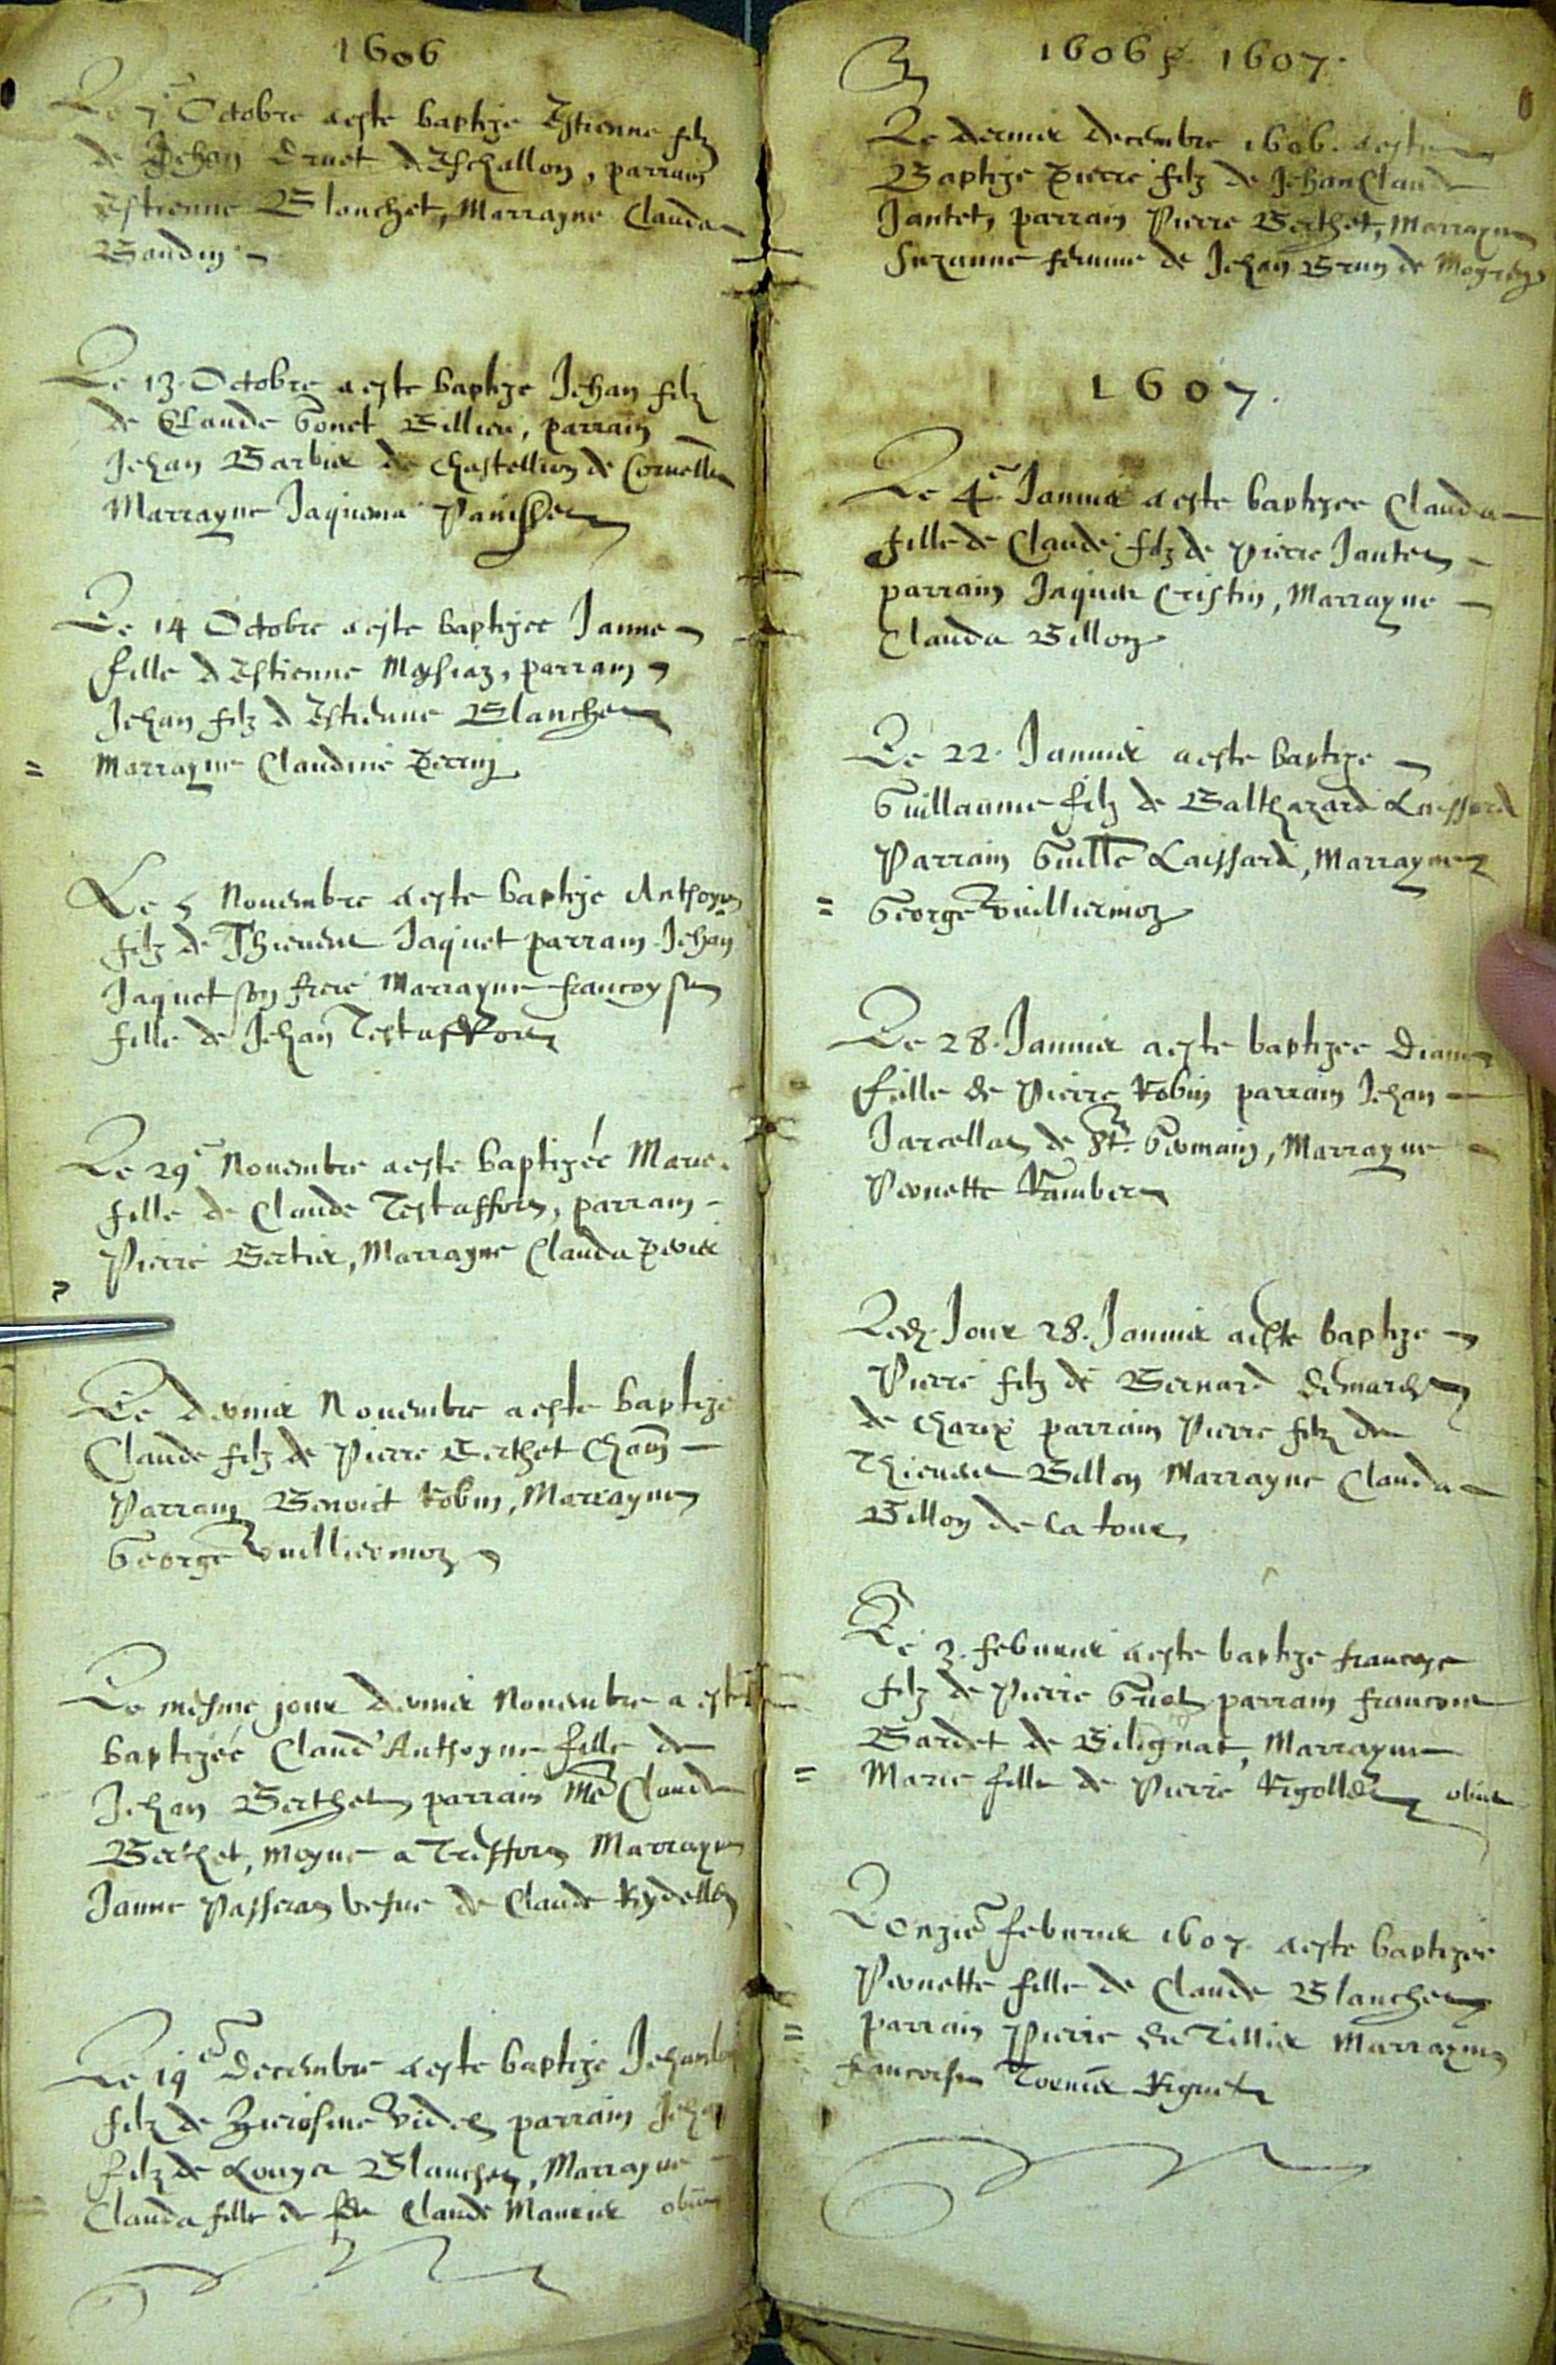 1606
Le 7e Octobre a este baptize Estienne filz
de Jehan Druet d Eschallon, parrain
Estienne Blanchet, Marrayne Clauda
Baudin
Le 13. Octobre a este baptize Jehan filz
de Claude Gonet Billieu, parrain
Jehan Barbier de Chastellion de Cornelle
Marrayne Jaquema
Le 14 Octobre a este baptizee Janne
fille d Estienne parrain
Jehan filz d Estienne Blanchet
= Marrayne Claudine Perrin
Le 5 Novembre a este baptize Anthoyne
filz de Thievent Jaquet parrain Jehan
Jaquet son frere Marrayne francoyse
fille de Jehan Testaffort
Le 29e Novembre a este baptizée Marie
fille de Claude Testaffort, parrain
Pierre Bertier, Marrayne Clauda
Le dernier Novembre a este baptize
Claude filz de Pierre Berthet
Parrain Benoict Robin, Marrayne
George Vuilliermoz
Le mesme jour dernier Novembre a este
baptizéé Claud' Anthoyne fille de
Jehan Berthet parrain Mre Claude
Berthet, moyne a Treffort Marrayne
Janne Passerat vefue de Claude Reydellet
Le 19e decembre a este baptize
filz de Hierosme Videt parrain Jehan
filz de Louys Blanchet, Marrayne
Clauda fille de feu Claude Maurier obiit
1606 & 1607.
Le dernier decembre 1606. a este
Baptize Pierre filz de Jehan Claude
Jantet, parrain Pierre Berthet, Marrayne
Suzanne femme de Jehan Brun de
1607.
Le 4e Januier a este baptizee Clauda
fille de Claude filz de Pierre Jantet
parrain Jaques Cristin, Marrayne
Clauda Billon
Le 22. Januier a este baptize
Guillaume filz de Balthazard Laissard
Parrain Guille Laissard, Marrayne
= George Vuilliermoz
Le 28. Januier a este baptizee Diane
fille de Pierre Robin parrain Jehan
Jarcellat de St. Germain, Marrayne
Pernette Rambert
Led. Jour 28. Januier a este baptize
Pierre filz de Bernard
de Charix parrain Pierre filz de
Thievent Billon Marrayne Clauda
Billon de la tour
Le 3. feburier a este baptize francoys
filz de Pierre parrain francoys
Bardet de Bilignat, Marrayne
= Marie fille de Pierre Rigollet obiit
L onzie feburier 1607. a este baptizée
Pernette fille de Claude Blanchet
= parrain Pierre du Tillier Marrayne
francoise Tornier